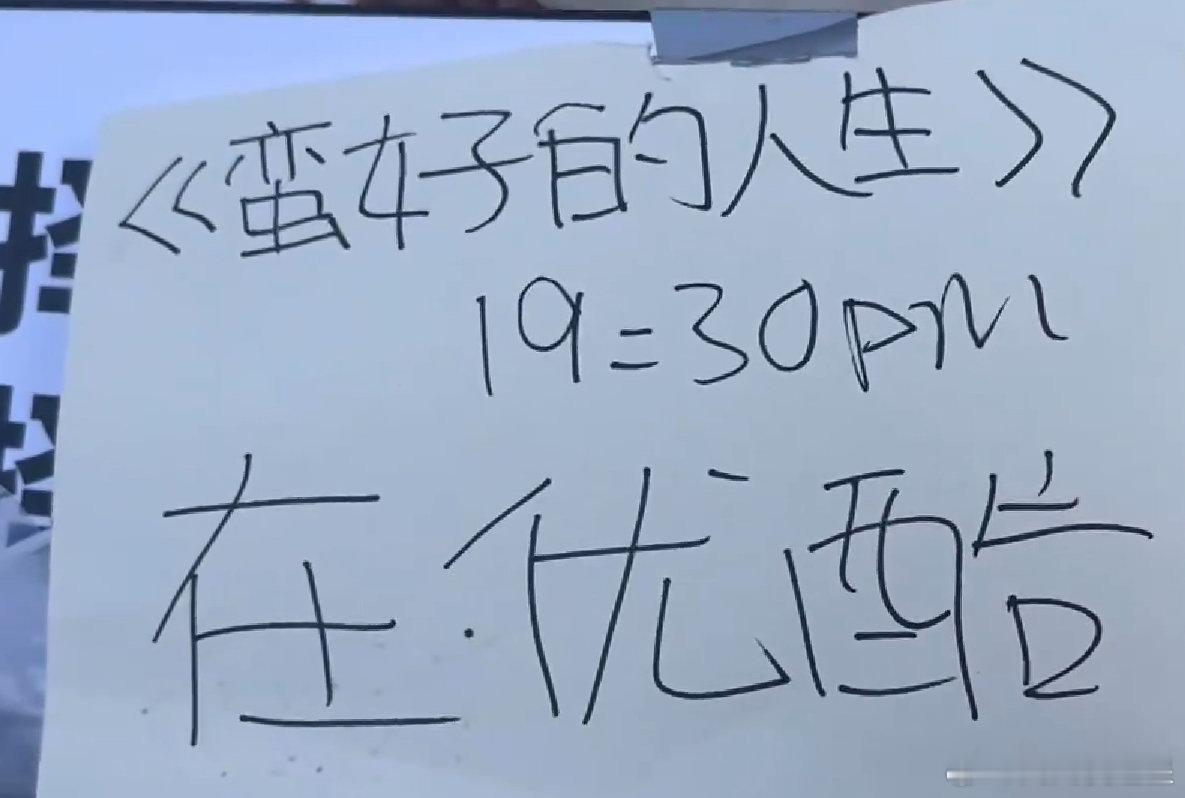 <<蛮好的人生>>
19:30pm
在·优酷